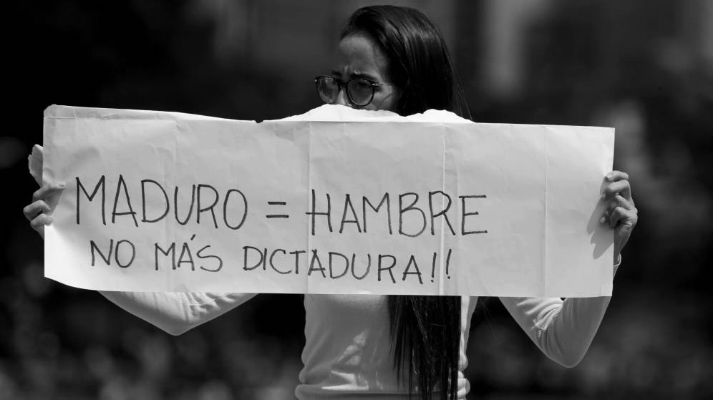 MADURO = HAMBRE
NO MÁS DICTADURA!!